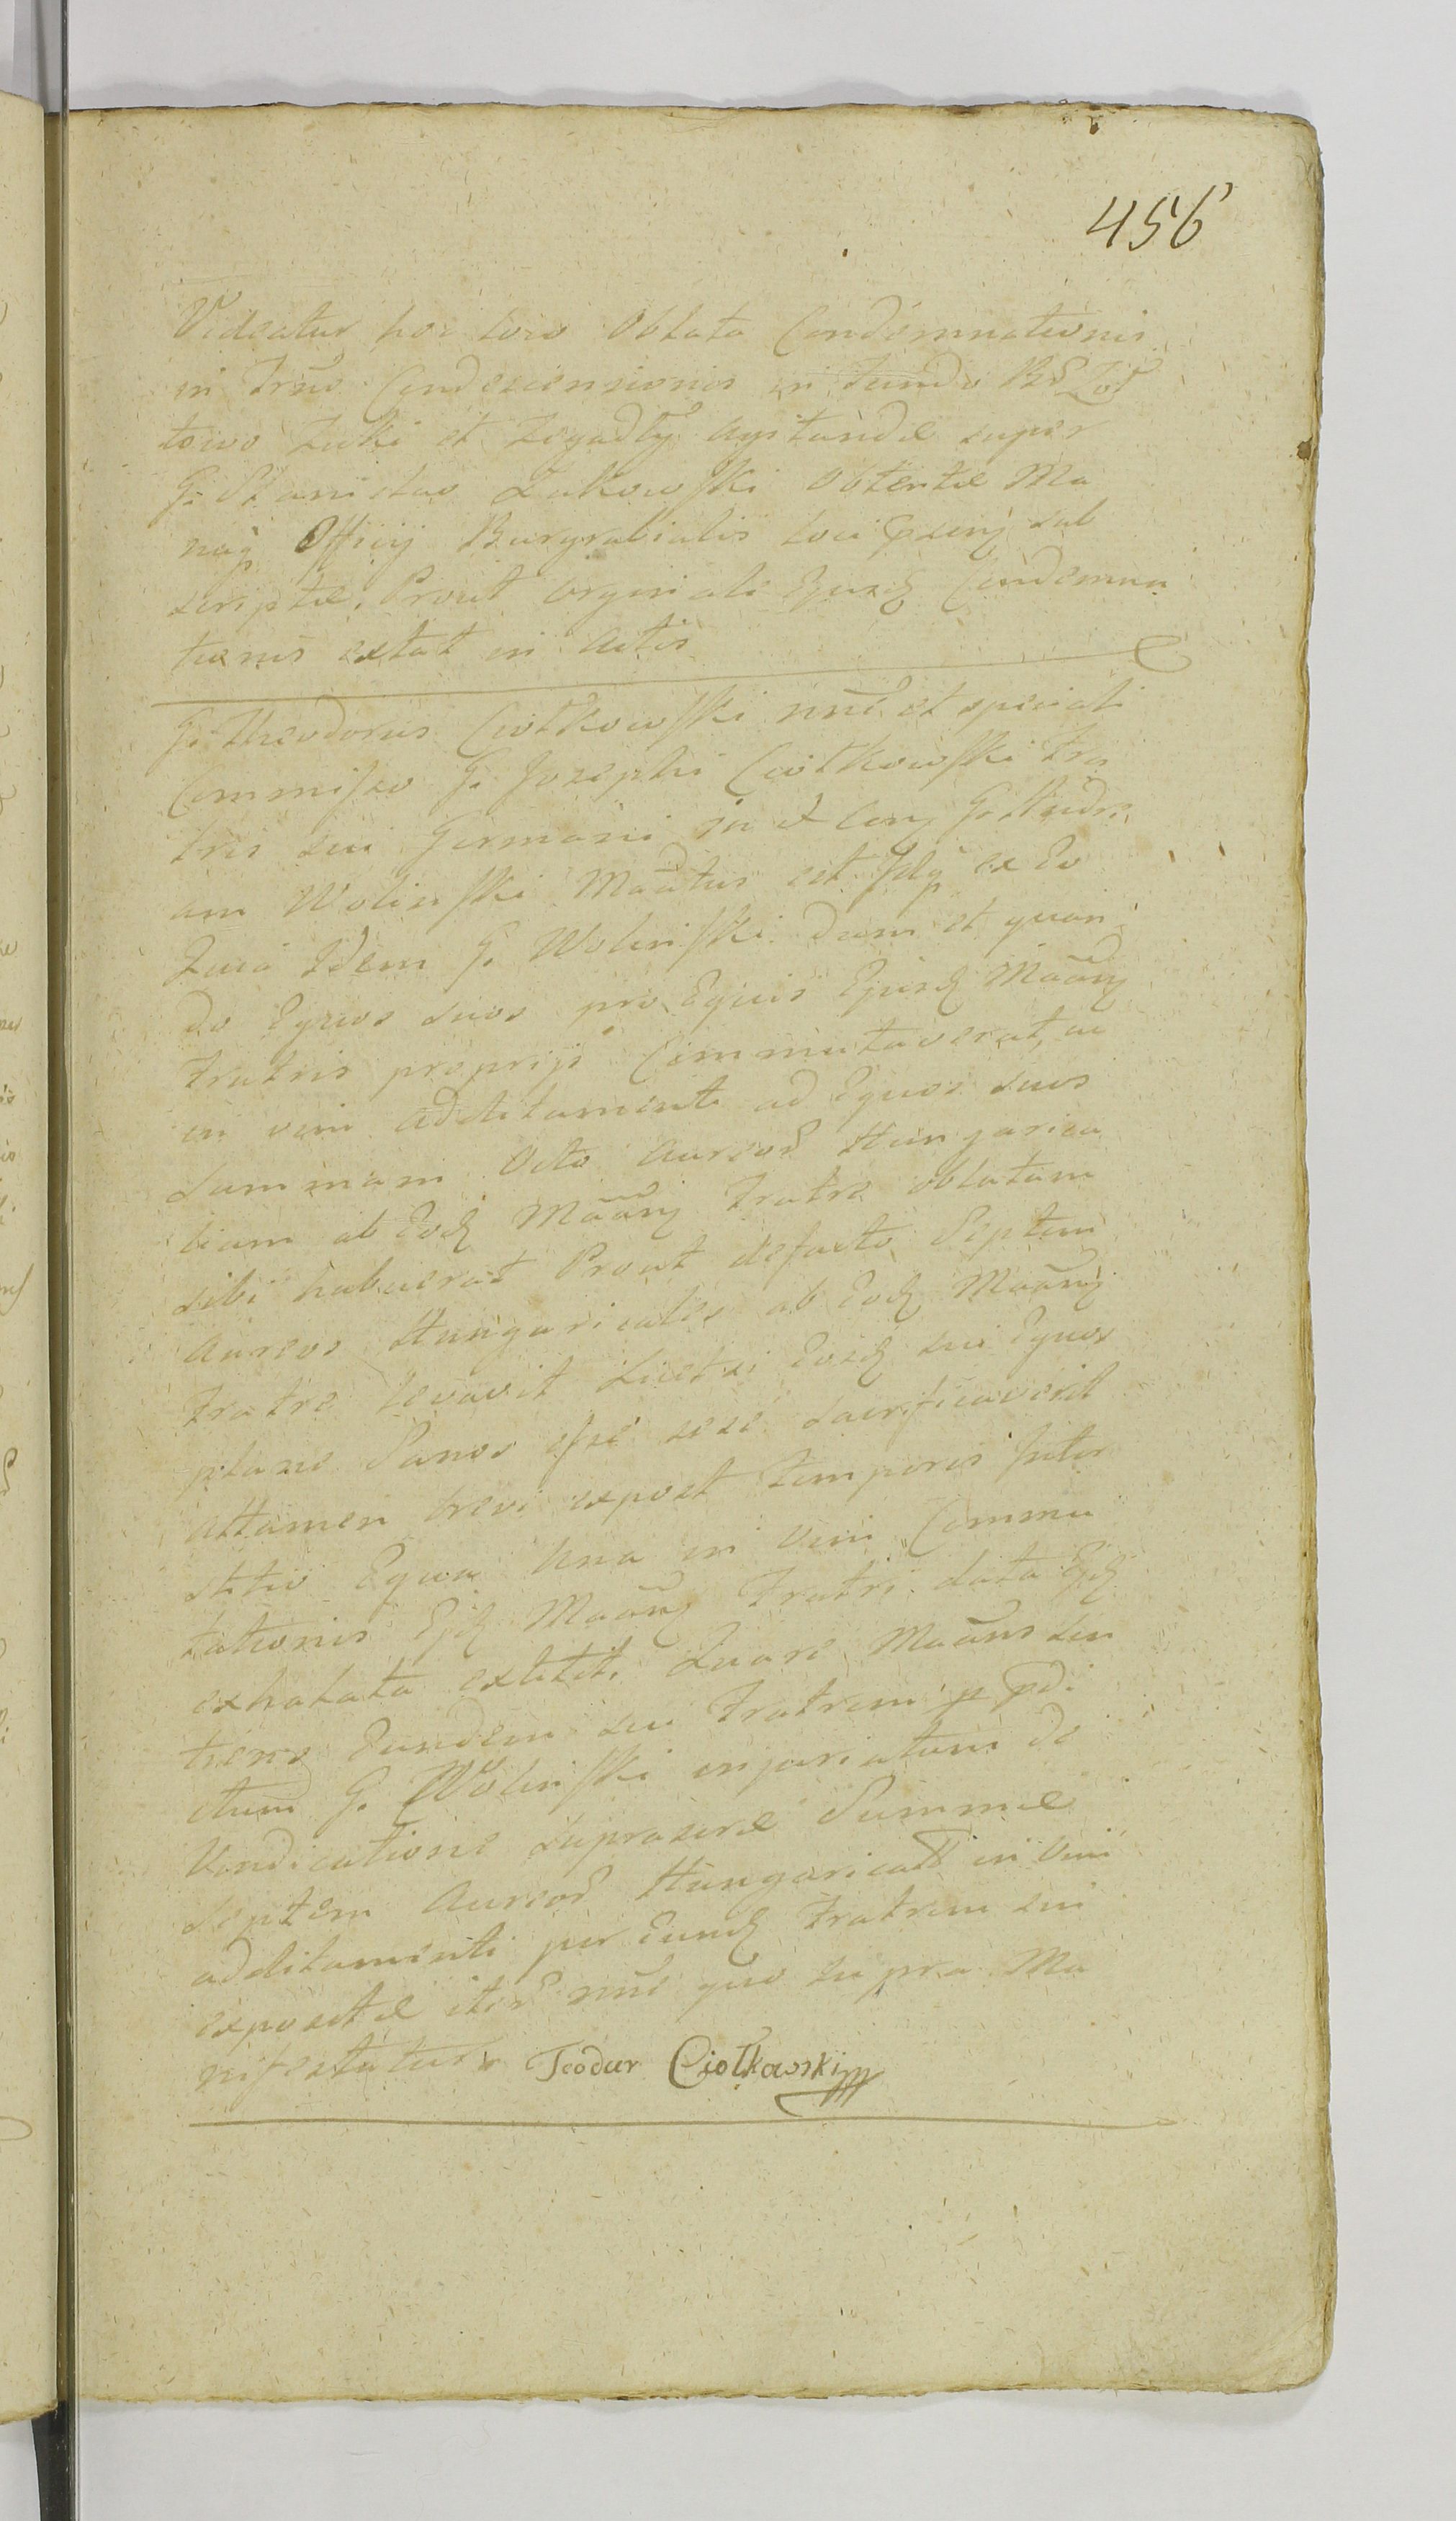 456
Videatur hoc loco Oblata Condemnationis
in Trno Condescensionis in fundo
towo Zuki et Zegadły agitandæ super
G. Stanislao Zukowski obtentæ Ma
nuq Officij Burgrabialis loci sub
scriptæ, Prout originale Ejusd Condemna
tionis extat in Actis
G. Theodorus Ciołkowski nne et speciali
Commisso G. Josephi Ciołkowski fra
tris sui Germani in et con G. Andre
am Wolinski Maãtus est Idq ex Eo
Quia Idem G. Wolinski dum et quan
do Equos suos pro Equis Ejusd Maãnt
fratris proprijs Commutaverat, ac
in vim additamenti ad Equos suos
Summam Octo Aureor Hungarica
lium ab Eod Maãnt fratre oblatam
sibi habuerat Prout defacto Septem
Aureos Hungaricales ab Eod Maãnt
fratre levavit Licet si Eosd sui Equos
plane Sanos esse sese sacrificaverit
attamen brevi expost temporis Inter
stitio Equa una in vim Commu
tationis Ejd Maãnt Fratri data Ejd
exhalata extitit. Quare Maãns sen
tiens Eundem sui Fratrem p pdi
ctum G. Wolinski injuriatum de
Vindicatione supraseræ Summæ
Septem Aureor Hungarical in vim
additamenti per Eund Fratrem sui
expositæ iter nne quo supra Ma
nifestatur Teodur Ciołkowski mp